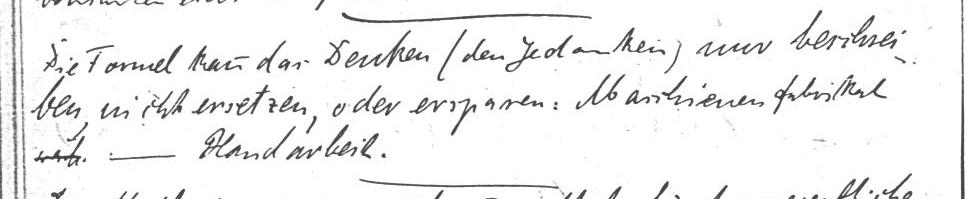 Die Formel kan̄ das Denken (den Gedanken) nur beschrei-
ben, nicht ersetzen, oder ersparen: Maschienenfabrikat
— Handarbeit.